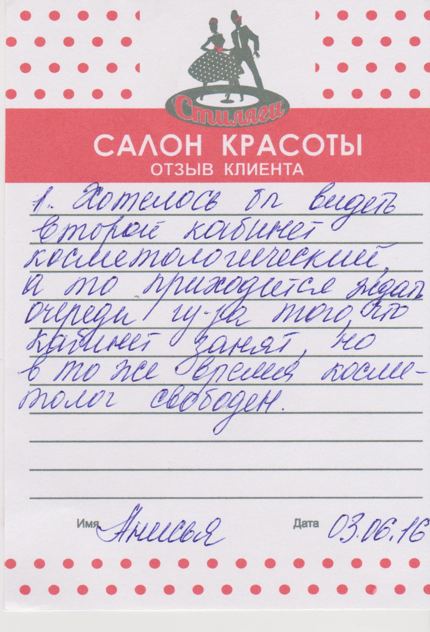 Стиляги
САЛОН КРАСОТЫ
ОТЗЫВ КЛИЕНТА
1. Хотелось бы видеть
второй кабинет
косметологический,
а то приходится ждать
очереди из-за того, что
кабинет занят, но
в то же время косме-
толог свободен.
Имя Анисья Дата 03.06.16